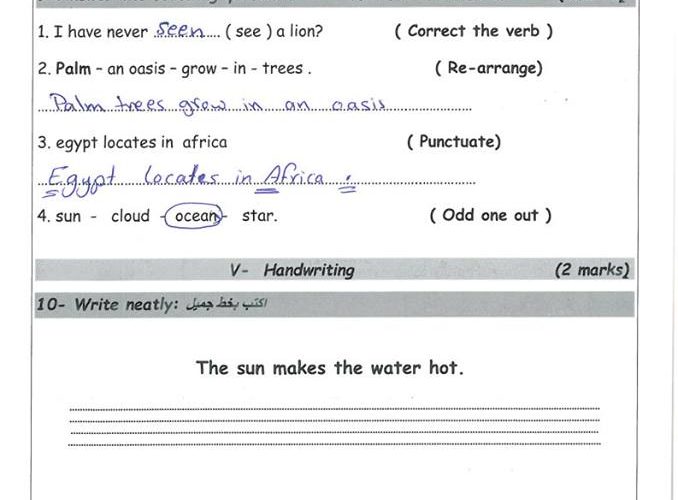 1. I have never seen.... ( see ) a lion? ( Correct the verb )
2. Palm - an oasis - grow - in - trees . ( Re-arrange)
Palm trees grow in an oasis
3. egypt locates in africa ( Punctuate)
Egypt locates in Africa .
4. sun - cloud - ocean - star. ( Odd one out )
V- Handwriting (2 marks)
10- Write neatly: اكتب بخط جميل
The sun makes the water hot.